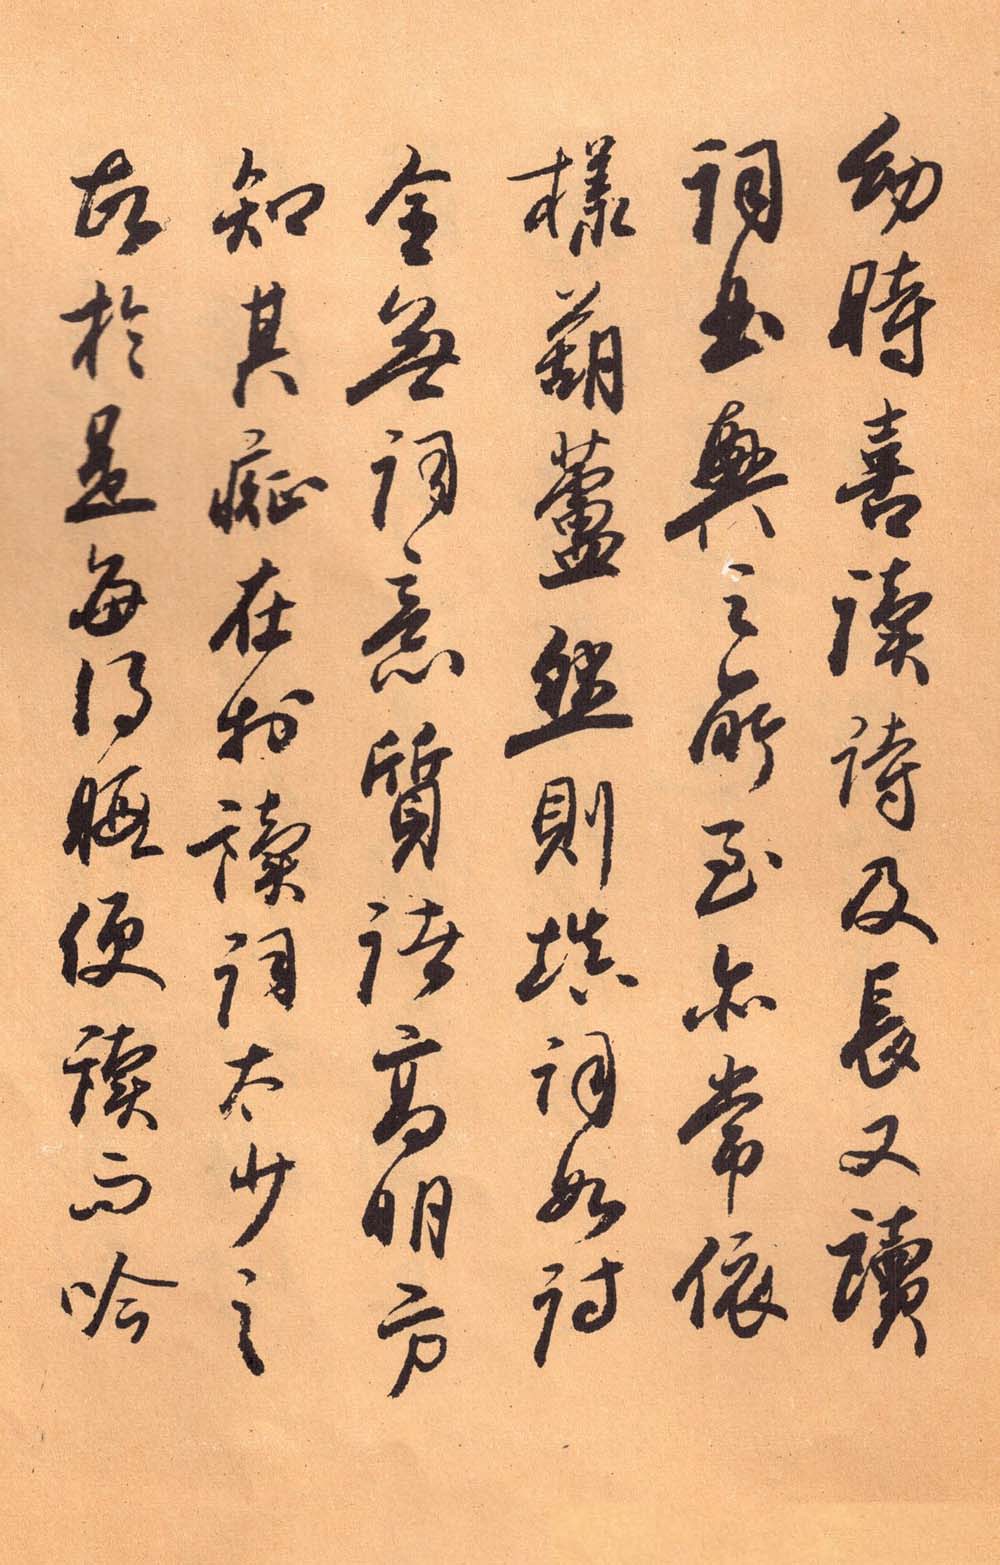 幼時喜讀詩及長又讀
詞書興之所至亦常依
樣葫蘆然則填詞如詩
全無詞意質諸高明方
知其癥在於讀詞太少之
故於是每得暇便讀而吟